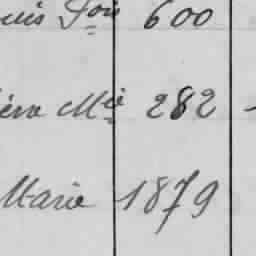 uis Fois 600
ère Mie 282
Marie 1879